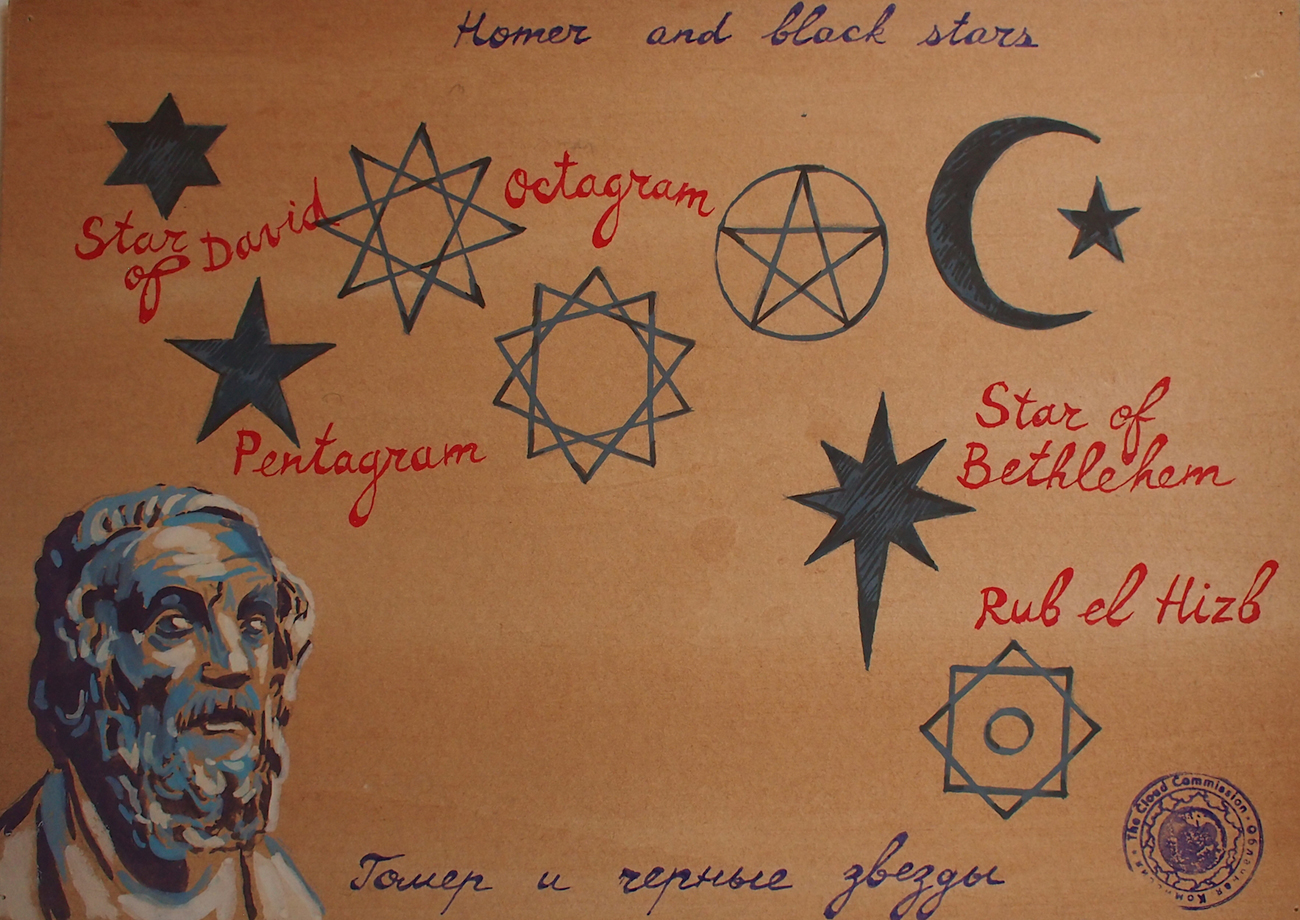 Homer and black stars
Star
of David
Octagram
Pentagram
Star of
Bethlehem
Rub el Hizb
Гомер и черные звезды
The Cloud Commission · Облачная Комиссия ·